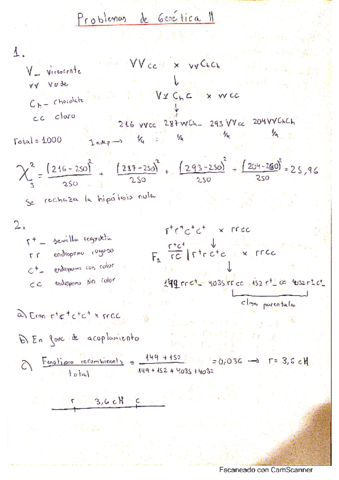 Problemas de Genética II
1.
V_ virescente
vv verde
Ch_ chocolate
cc claro
VVcc x vvChCh
VvChc x vvcc
216 vvcc 287 293 VVcc 204
Total = 1000 1/4 1/4 1/4 1/4
X²₃ = (216-250)²/250 + (287-250)²/250 + (293-250)²/250 + (204-250)²/250 = 25,96
Se rechaza la hipótesis nula
2.
r⁺_ semilla
rr endospermo rugoso
c⁺_ endospermo con color
cc endospermo sin color
r⁺r⁺c⁺c⁺ x rrcc
F₁ r⁺c⁺/rc | r⁺rc⁺c x rrcc
149 rrc⁺_ 4035 rrcc 152 r⁺_cc 4032 r⁺_c⁺_
clase parentales
a) Eran r⁺r⁺c⁺c⁺ x rrcc
b) En fase de acoplamiento
c) Fenotipos recombinantes/total = 149 + 152/149 + 152 + 4035 + 4032 = 0,036 → r = 3,6 cM
r 3,6 cM c
Escaneado con CamScanner